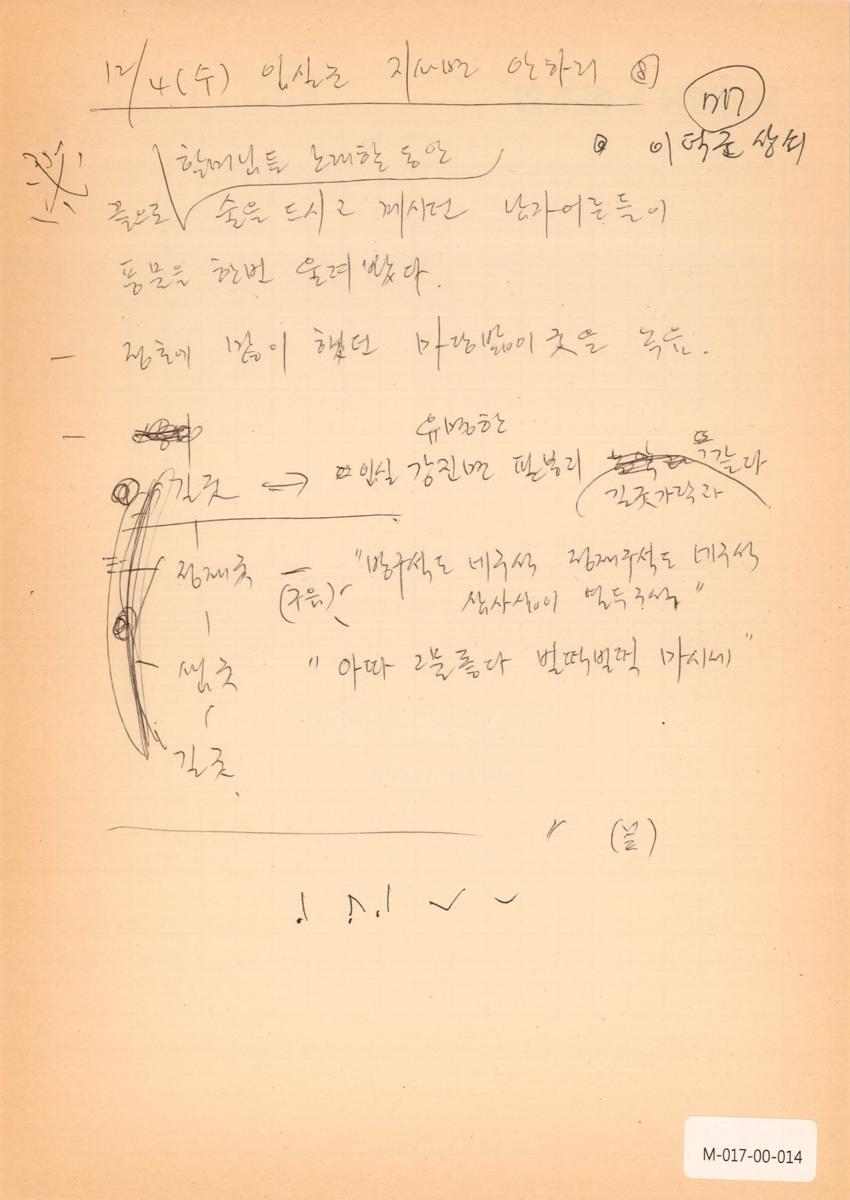 12/4(수) 임실군 지사면 안하리 ⑧
이덕준 상쇠
할머님들 노래할 동안
끝으로 술을 드시고 계시던 남자어른들이
풍물을 한번 울려 봤다.
- 정초에 많이 했던 마당밟이 굿을 녹음.
유명한
길굿 → 임실 강진면 필봉리 똑같다
길굿가락과
정재굿 - "방구석도 네구석 정재구석도 네구석
(구음) 삼사십이 열두구석"
샘굿 "아따 그물좋다 벌떡벌떡 마시세"
길굿
(끝)
M-017-00-014